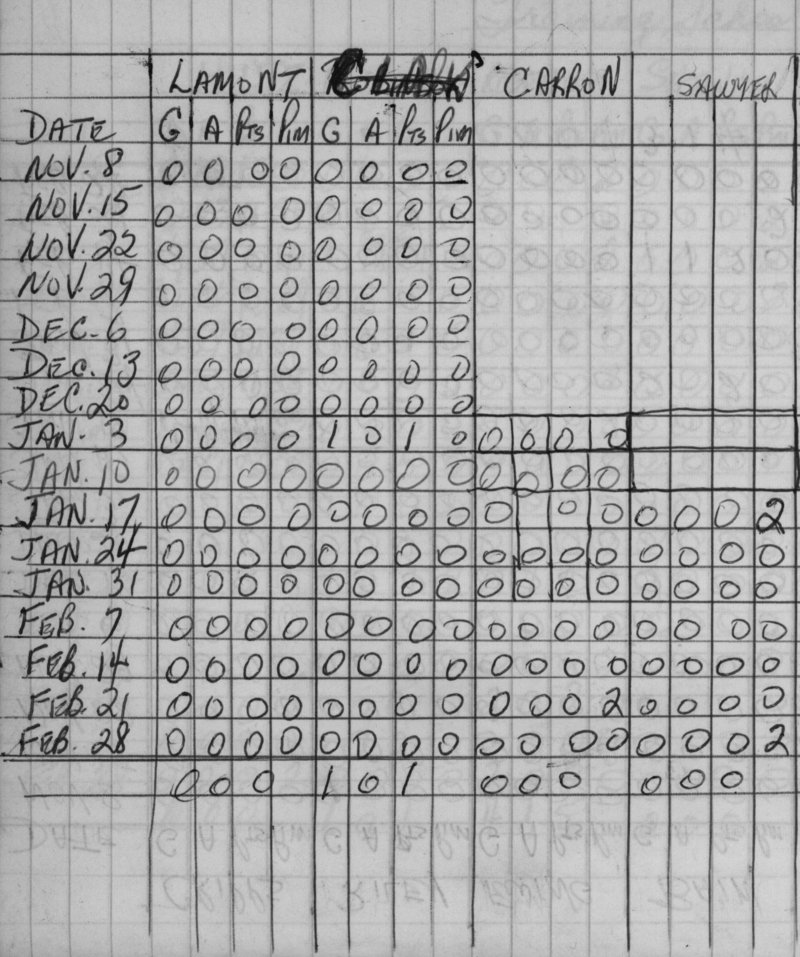 LAMONT CARRON SAWYER
DATE G A Pts Pim G A Pts Pim
NOV. 8 0 0 0 0 0 0 0 0
NOV. 15 0 0 0 0 0 0 0 0
NOV. 22 0 0 0 0 0 0 0 0
NOV. 29 0 0 0 0 0 0 0 0
DEC. 6 0 0 0 0 0 0 0 0
DEC. 13 0 0 0 0 0 0 0 0
DEC. 20 0 0 0 0 0 0 0 0
JAN. 3 0 0 0 0 1 0 1 0 0 0 0 0
JAN. 10 0 0 0 0 0 0 0 0 0 0 0 0
JAN. 17 0 0 0 0 0 0 0 0 0 0 0 0 0 0 2
JAN. 24 0 0 0 0 0 0 0 0 0 0 0 0 0 0 0 0
JAN. 31 0 0 0 0 0 0 0 0 0 0 0 0 0 0 0 0
FEB. 7 0 0 0 0 0 0 0 0 0 0 0 0 0 0 0 0
FEB. 14 0 0 0 0 0 0 0 0 0 0 0 0 0 0 0 0
FEB. 21 0 0 0 0 0 0 0 0 0 0 0 2 0 0 0 0
FEB. 28 0 0 0 0 0 0 0 0 0 0 0 0 0 0 0 2
0 0 0 1 0 1 0 0 0 0 0 0